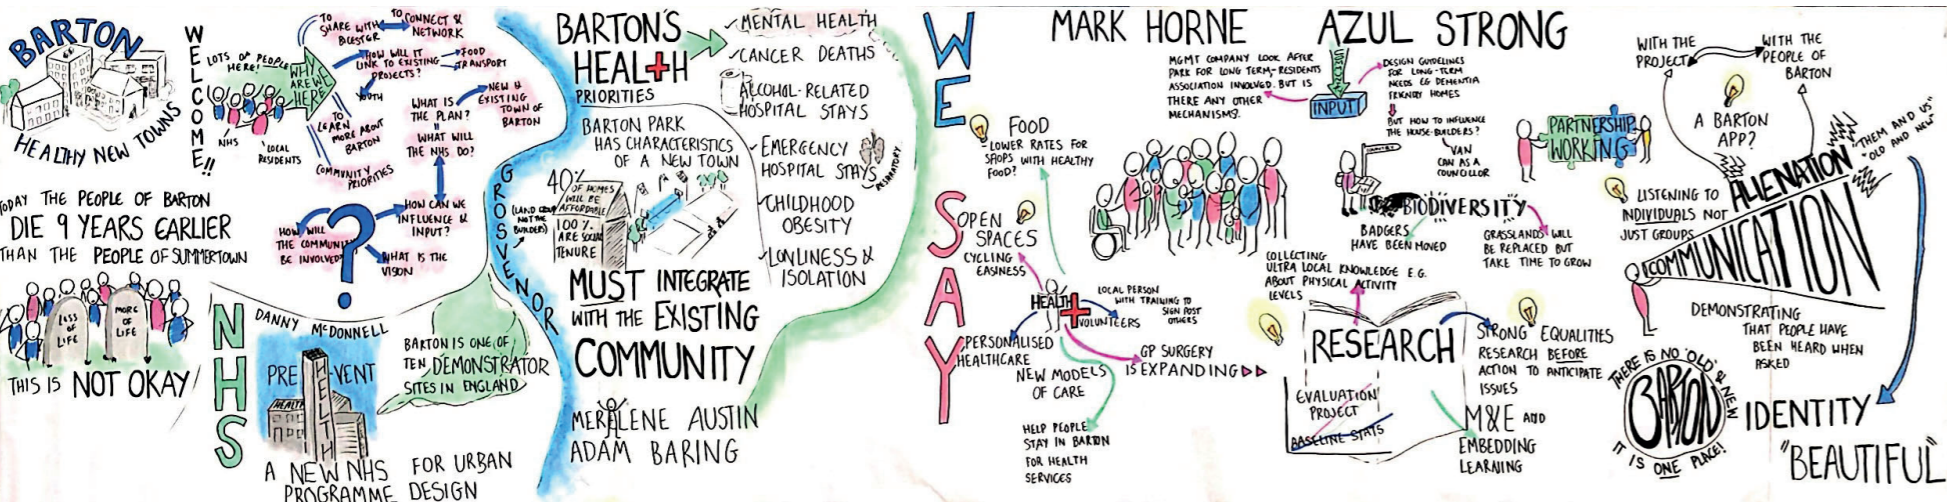 BARTON
HEALTHY NEW TOWNS
WELCOME!!
LOTS OF PEOPLE
HERE!
NHS
LOCAL
RESIDENTS
WHY
ARE WE
HERE
TO
SHARE WITH
BICESTER
TO
CONNECT &
NETWORK
HOW WILL IT
LINK TO EXISTING
PROJECTS?
FOOD
TRANSPORT
YOUTH
TO
LEARN
MORE ABOUT
BARTON
COMMUNITY
PRIORITIES
WHAT IS
THE PLAN?
NEW &
EXISTING
TOWN OF
BARTON
WHAT WILL
THE NHS DO?
HOW CAN WE
INFLUENCE &
INPUT?
?
HOW WILL
THE COMMUNITY
BE INVOLVED?
WHAT IS THE
VISION
TODAY THE PEOPLE OF BARTON
DIE 9 YEARS EARLIER
THAN THE PEOPLE OF SUMMERTOWN
LESS
OF
LIFE
MORE
OF
LIFE
THIS IS NOT OKAY
NHS
DANNY McDONNELL
PRE-VENT
HEALTH
HEALTH
A NEW NHS
PROGRAMME
FOR URBAN
DESIGN
BARTON IS ONE OF
TEN DEMONSTRATOR
SITES IN ENGLAND
GROSVENOR
(LAND GROUP
NOT THE
BUILDERS)
BARTON'S
HEALTH
PRIORITIES
MENTAL HEALTH
CANCER DEATHS
ALCOHOL-RELATED
HOSPITAL STAYS
EMERGENCY
HOSPITAL STAYS
RESPIRATORY
CHILDHOOD
OBESITY
LONLINESS &
ISOLATION
BARTON PARK
HAS CHARACTERISTICS
OF A NEW TOWN
40%
OF HOMES
WILL BE
AFFORDABLE
100%
ARE SOCIAL
TENURE
MUST INTEGRATE
WITH THE EXISTING
COMMUNITY
MERLENE AUSTIN
ADAM BARING
WE SAY
MARK HORNE
AZUL STRONG
FOOD
LOWER RATES FOR
SHOPS WITH HEALTHY
FOOD?
OPEN
SPACES
CYCLING
EASINESS
HEALTH
LOCAL PERSON
WITH TRAINING TO
SIGN POST
OTHERS
VOLUNTEERS
PERSONALISED
HEALTHCARE
GP SURGERY
IS EXPANDING
NEW MODELS
OF CARE
HELP PEOPLE
STAY IN BARTON
FOR HEALTH
SERVICES
MGMT COMPANY LOOK AFTER
PARK FOR LONG TERM-RESIDENTS
ASSOCIATION INVOLVED. BUT IS
THERE ANY OTHER
MECHANISMS.
INPUT
DESIGN GUIDELINES
FOR LONG-TERM
NEEDS EG DEMENTIA
FRIENDLY HOMES
BUT HOW TO INFLUENCE
THE HOUSE-BUILDERS?
VAN
CAN AS A
COUNCILLOR
BIODIVERSITY
BADGERS
HAVE BEEN MOVED
GRASSLANDS WILL
BE REPLACED BUT
TAKE TIME TO GROW
COLLECTING
ULTRA LOCAL KNOWLEDGE E.G.
ABOUT PHYSICAL ACTIVITY
LEVELS
RESEARCH
EVALUATION
PROJECT
BASELINE STATS
STRONG EQUALITIES
RESEARCH BEFORE
ACTION TO ANTICIPATE
ISSUES
M&E AND
EMBEDDING
LEARNING
PARTNERSHIP
WORKING
WITH THE
PROJECT
WITH THE
PEOPLE OF
BARTON
A BARTON
APP?
LISTENING TO
INDIVIDUALS NOT
JUST GROUPS
ALLENATION
"THEM AND US"
"OLD AND NEW"
COMMUNICATION
DEMONSTRATING
THAT PEOPLE HAVE
BEEN HEARD WHEN
ASKED
THERE IS NO 'OLD' & NEW
BARTON
IT IS ONE PLACE!
IDENTITY
"BEAUTIFUL"